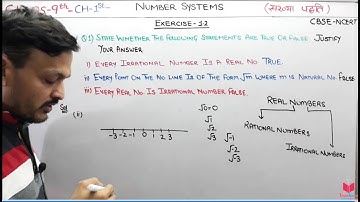 9th - CH-1st-
NUMBER SYSTEMS
(संख्या पद्धति)
EXERCISE-1.2
CBSE-NCERT
Q.1) STATE WHETHER THE FOLLOWING STATEMENTS ARE TRUE OR FALSE. JUSTIFY
YOUR ANSWER.
i) EVERY IRRATIONAL NUMBER IS A REAL NO. TRUE.
ii) EVERY POINT ON THE NO. LINE IS OF THE FORM √m WHERE m IS NATURAL NO. FALSE.
iii) EVERY REAL NO. IS IRRATIONAL NUMBER FALSE.
Sol
(ii)
-3 -2 -1 0 1 2 3
√0=0
√1
√2
√3
√-1
√-2
√-3
REAL NUMBERS
RATIONAL NUMBERS
IRRATIONAL NUMBERS